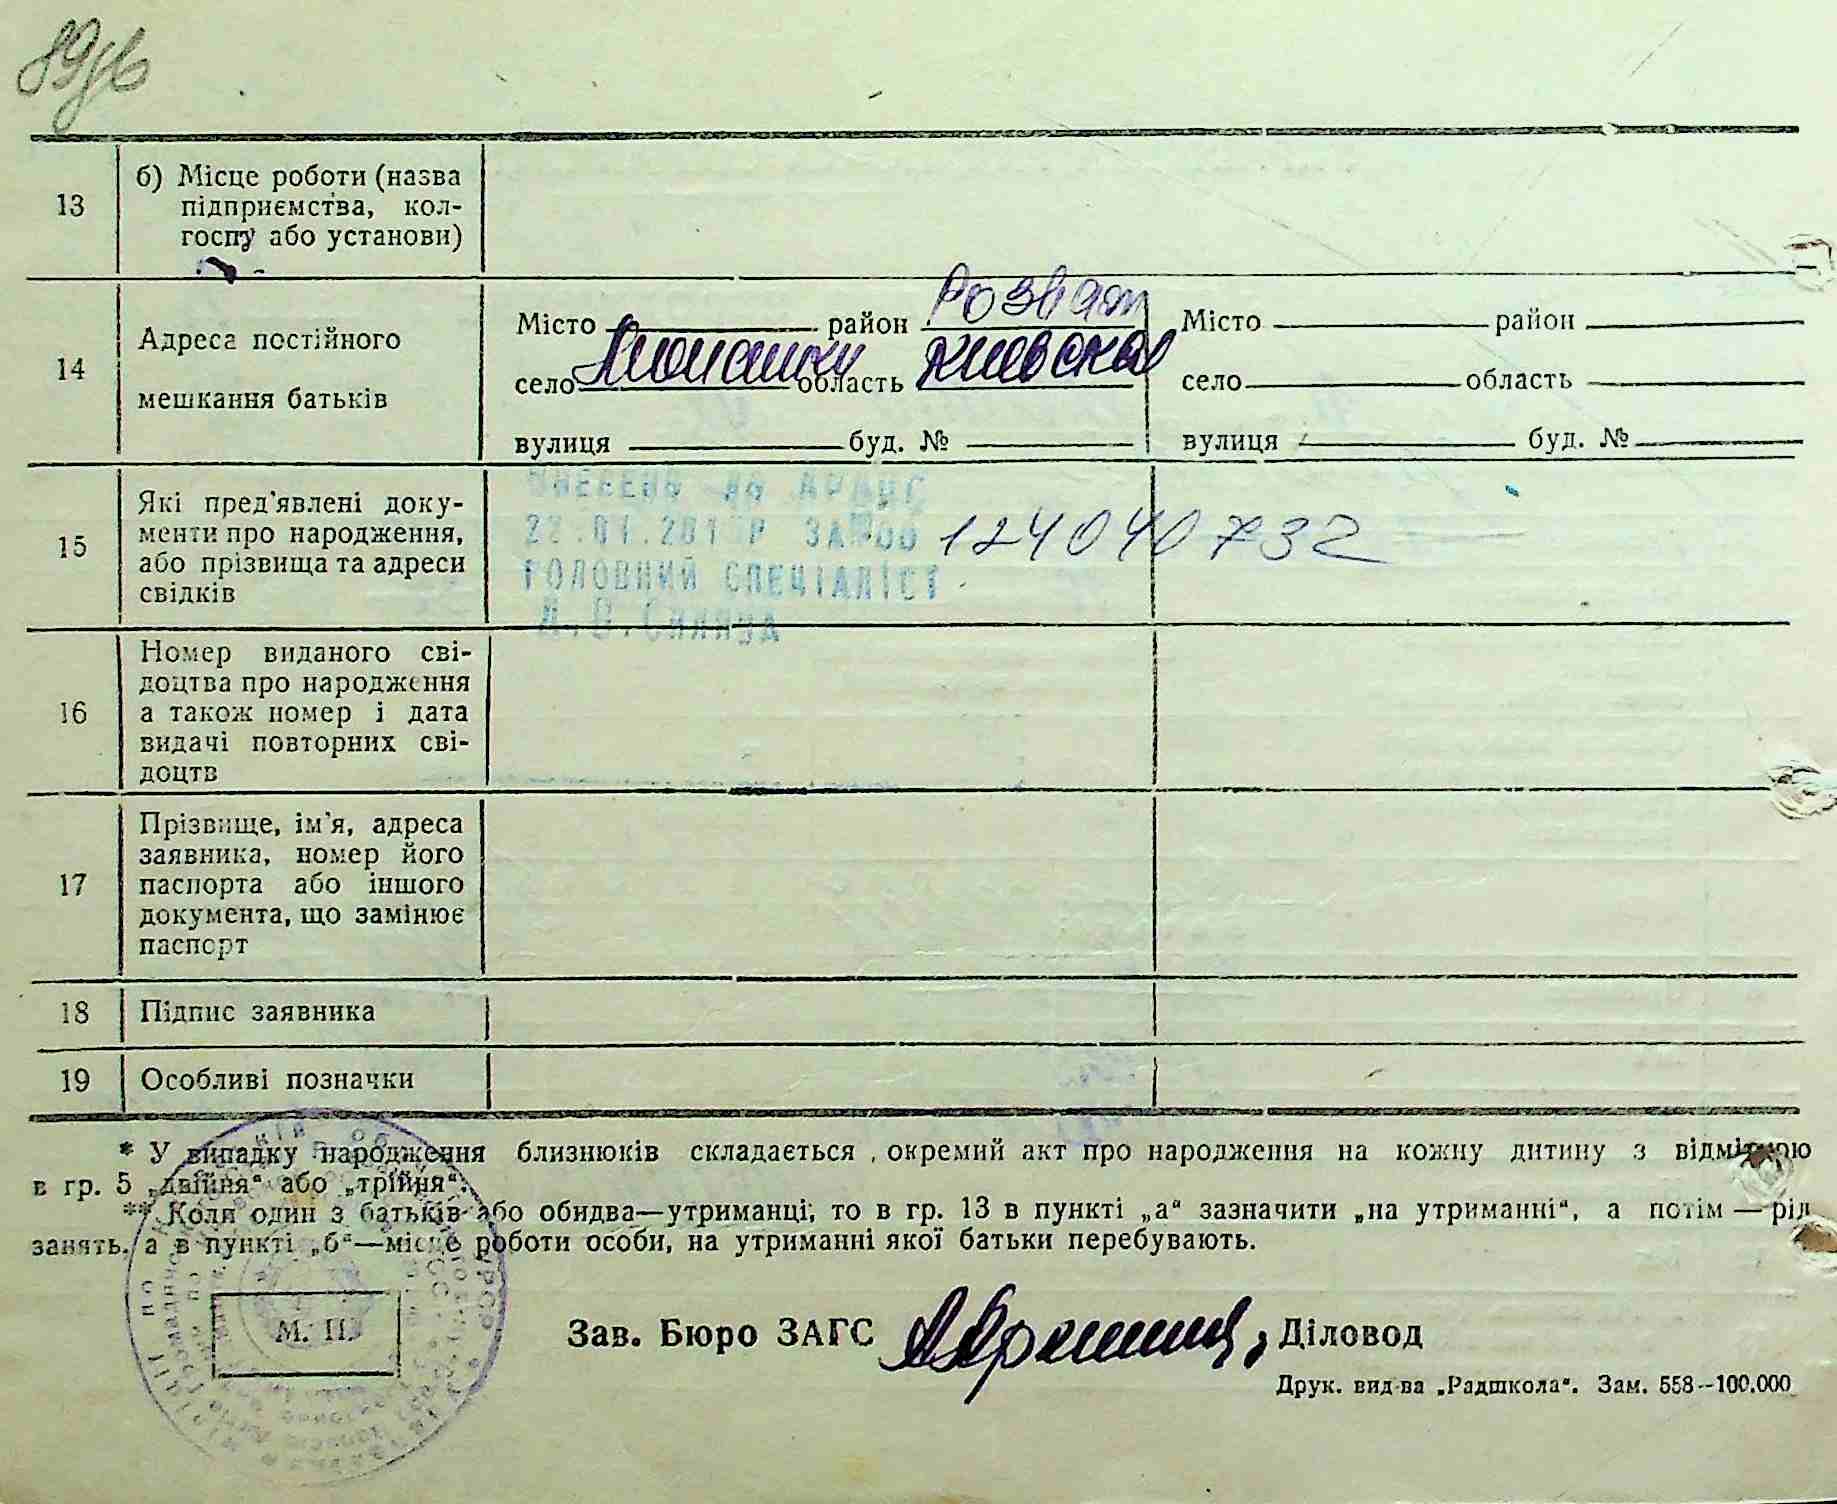 89зв
13
б) Місце роботи (назва
підприємства, кол-
госпу або установи)
14
Адреса постійного
мешкання батьків
Місто район Розваж
село область Киевская
вулиця буд. №
Місто район
село область
вулиця буд. №
15
Які пред'явлені доку-
менти про народження,
або прізвища та адреси
свідків
ВНЕСЕНО ДО ДРАЦС
22.01.201 Р ЗА №00 124040732
ГОЛОВНИЙ СПЕЦІАЛІСТ
16
Номер виданого сві-
доцтва про народження
а також номер і дата
видачі повторних сві-
доцтв
17
Прізвище, ім'я, адреса
заявника, номер його
паспорта або іншого
документа, що замінює
паспорт
18
Підпис заявника
19
Особливі позначки
* У випадку народження близнюків складається окремий акт про народження на кожну дитину з відміткою
в гр. 5 „двійня“ або „трійня“.
** Коли один з батьків або обидва—утриманці, то в гр. 13 в пункті „а“ зазначити „на утриманні“, а потім — рід
занять, а в пункті „б“—місце роботи особи, на утриманні якої батьки перебувають.
М. П.
Зав. Бюро ЗАГС Діловод
Друк. вид-ва „Радшкола“. Зам. 558--100.000